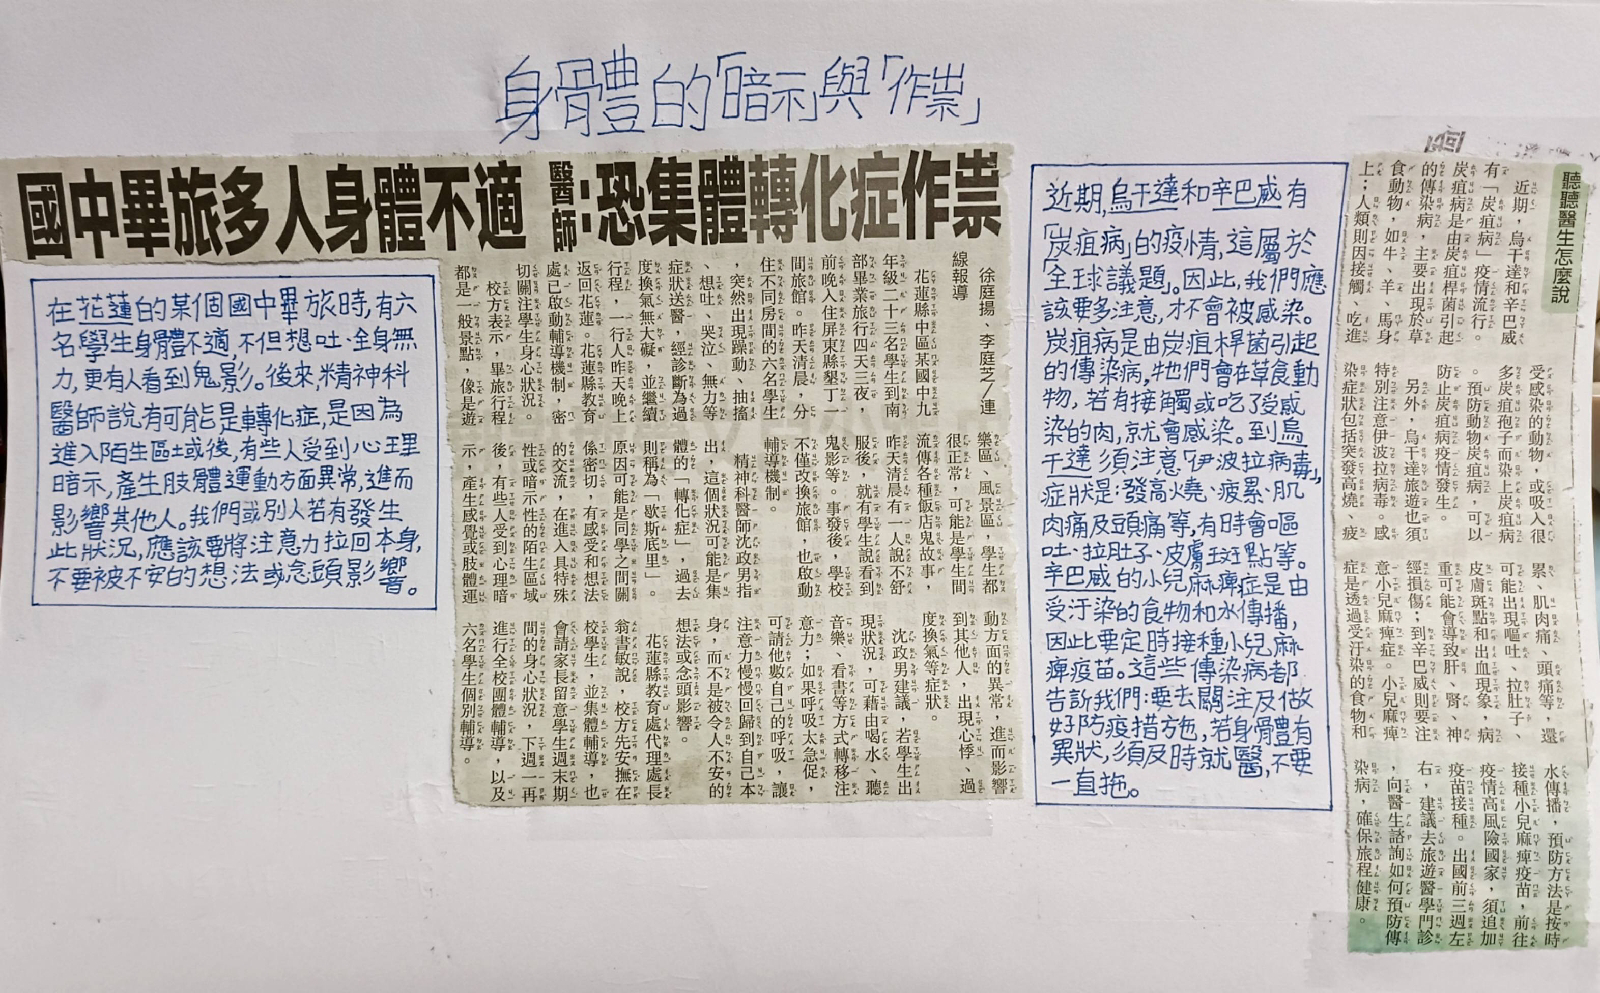 身體的「暗示」與「作祟」
國中畢旅多人身體不適 醫師:恐集體轉化症作祟
在花蓮的某個國中畢旅時,有六
名學生身體不適,不但想吐、全身無
力,更有人看到鬼影。後來,精神科
醫師說,有可能是轉化症,是因為
進入陌生區域後,有些人受到心理
暗示,產生肢體運動方面異常,進而
影響其他人。我們或別人若有發生
此狀況,應該要將注意力拉回本身,
不要被不安的想法或念頭影響。
徐庭揚、李庭芝/連
線報導
花蓮縣中區某國中九
年級二十三名學生到南
部畢業旅行四天三夜,
前晚入住屏東縣墾丁一
間旅館。昨天清晨,分
住不同房間的六名學生
突然出現躁動、抽搐
、想吐、哭泣、無力等
症狀送醫,經診斷為過
度換氣無大礙,並繼續
行程,一行人昨天晚上
返回花蓮。花蓮縣教育
處已啟動輔導機制,密
切關注學生身心狀況。
校方表示,畢旅行程
都是一般景點,像是遊
樂區、風景區,學生都
很正常,可能是學生間
流傳各種飯店鬼故事,
昨天清晨有一人說不舒
服後,就有學生說看到
鬼影等。事發後,學校
不僅改換旅館,也啟動
輔導機制。
精神科醫師沈政男指
出,這個狀況可能是集
體的「轉化症」,過去
則稱為「歇斯底里」。
原因可能是同學之間關
係密切,有感受和想法
的交流,在進入具特殊
性或暗示性的陌生區域
後,有些人受到心理暗
示,產生感覺或肢體運
動方面的異常,進而影響
到其他人,出現心悸、過
度換氣等症狀。
沈政男建議,若學生出
現狀況,可藉由喝水、聽
音樂、看書等方式轉移注
意力;如果呼吸太急促,
可請他數自己的呼吸,讓
注意力慢慢回歸到自己本
身,而不是被令人不安的
想法或念頭影響。
花蓮縣教育處代理處長
翁書敏說,校方先安撫在
校學生,並集體輔導,也
會請家長留意學生週末期
間的身心狀況,下週一再
進行全校團體輔導,以及
六名學生個別輔導。
近期,烏干達和辛巴威有
「炭疽病」的疫情,這屬於
「全球議題」。因此,我們應
該要多注意,才不會被感染。
炭疽病是由炭疽桿菌引起
的傳染病,牠們會在草食動
物,若有接觸或吃了受感
染的肉,就會感染。到烏
干達須注意「伊波拉病毒」,
症狀是:發高燒、疲累、肌
肉痛及頭痛等,有時會嘔
吐、拉肚子、皮膚斑點等。
辛巴威的小兒麻痺症是由
受汙染的食物和水傳播,
因此要定時接種小兒麻
痺疫苗。這些傳染病都
告訴我們:要去關注及做
好防疫措施,若身體有
異狀,須及時就醫,不要
一直拖。
聽聽醫生怎麼說
近期,烏干達和辛巴威
有「炭疽病」疫情流行。
炭疽病是由炭疽桿菌引起
的傳染病,主要出現於草
食動物,如牛、羊、馬身
上;人類則因接觸、吃進
受感染的動物,或吸入很
多炭疽孢子而染上炭疽病
。預防動物炭疽病,可以
防止炭疽病疫情發生。
另外,烏干達旅遊也須
特別注意伊波拉病毒。感
染症狀包括突發高燒、疲
累、肌肉痛、頭痛等,還
可能出現嘔吐、拉肚子、
皮膚斑點和出血現象,病
重可能會導致肝、腎、神
經損傷;到辛巴威則要注
意小兒麻痺症。小兒麻痺
症是透過受汙染的食物和
水傳播,預防方法是按時
接種小兒麻痺疫苗,前往
疫情高風險國家,須追加
疫苗接種。出國前三週左
右,建議去旅遊醫學門診
,向醫生諮詢如何預防傳
染病,確保旅程健康。